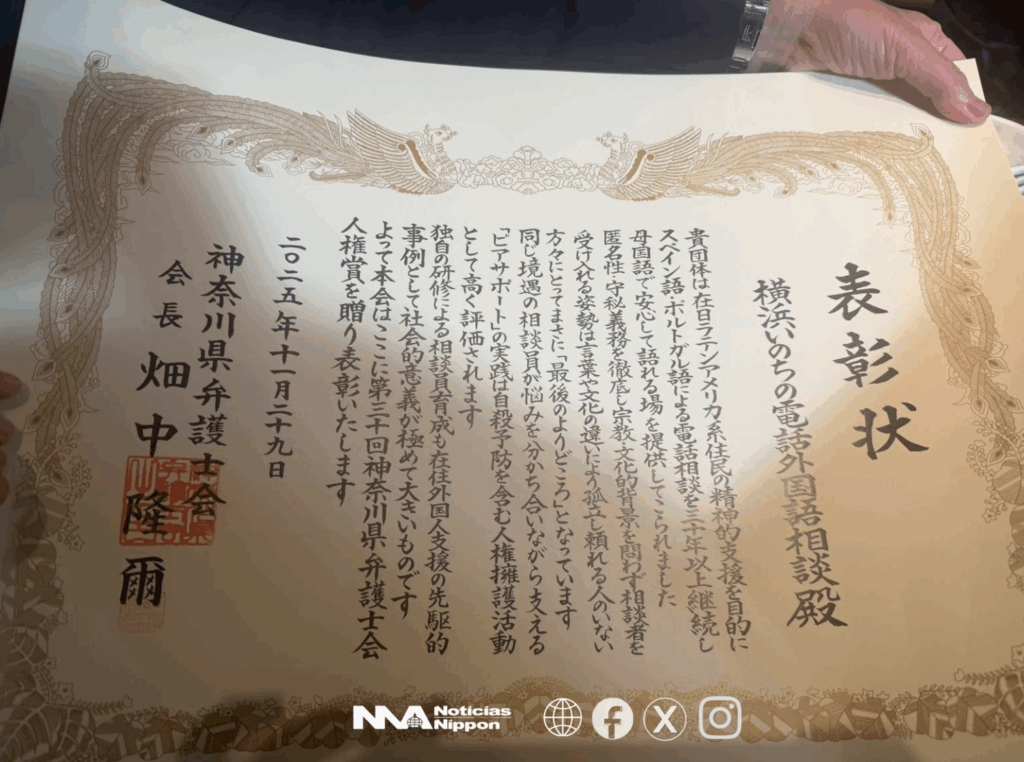 表彰状
横浜いのちの電話外国語相談殿
貴団体は在日ラテンアメリカ系住民の精神的支援を目的に
スペイン語・ポルトガル語による電話相談を三十年以上継続し
母国語で安心して語れる場を提供してこられました
匿名性・守秘義務を徹底し宗教・文化的背景を問わず相談者を
受け入れる姿勢は言葉や文化の違いにより孤立し頼れる人のいない
方々にとってまさに「最後のよりどころ」となっています
同じ境遇の相談員が悩みを分かち合いながら支える
「ピアサポート」の実践は自殺予防を含む人権擁護活動
として高く評価されます
独自の研修による相談員育成も在住外国人支援の先駆的
事例として社会的意義が極めて大きいものです
よって本会はここに第三十回神奈川県弁護士会
人権賞を贈り表彰いたします
二〇二五年十一月二十九日
神奈川県弁護士会
会長 畑中隆爾
Noticias
Nippon